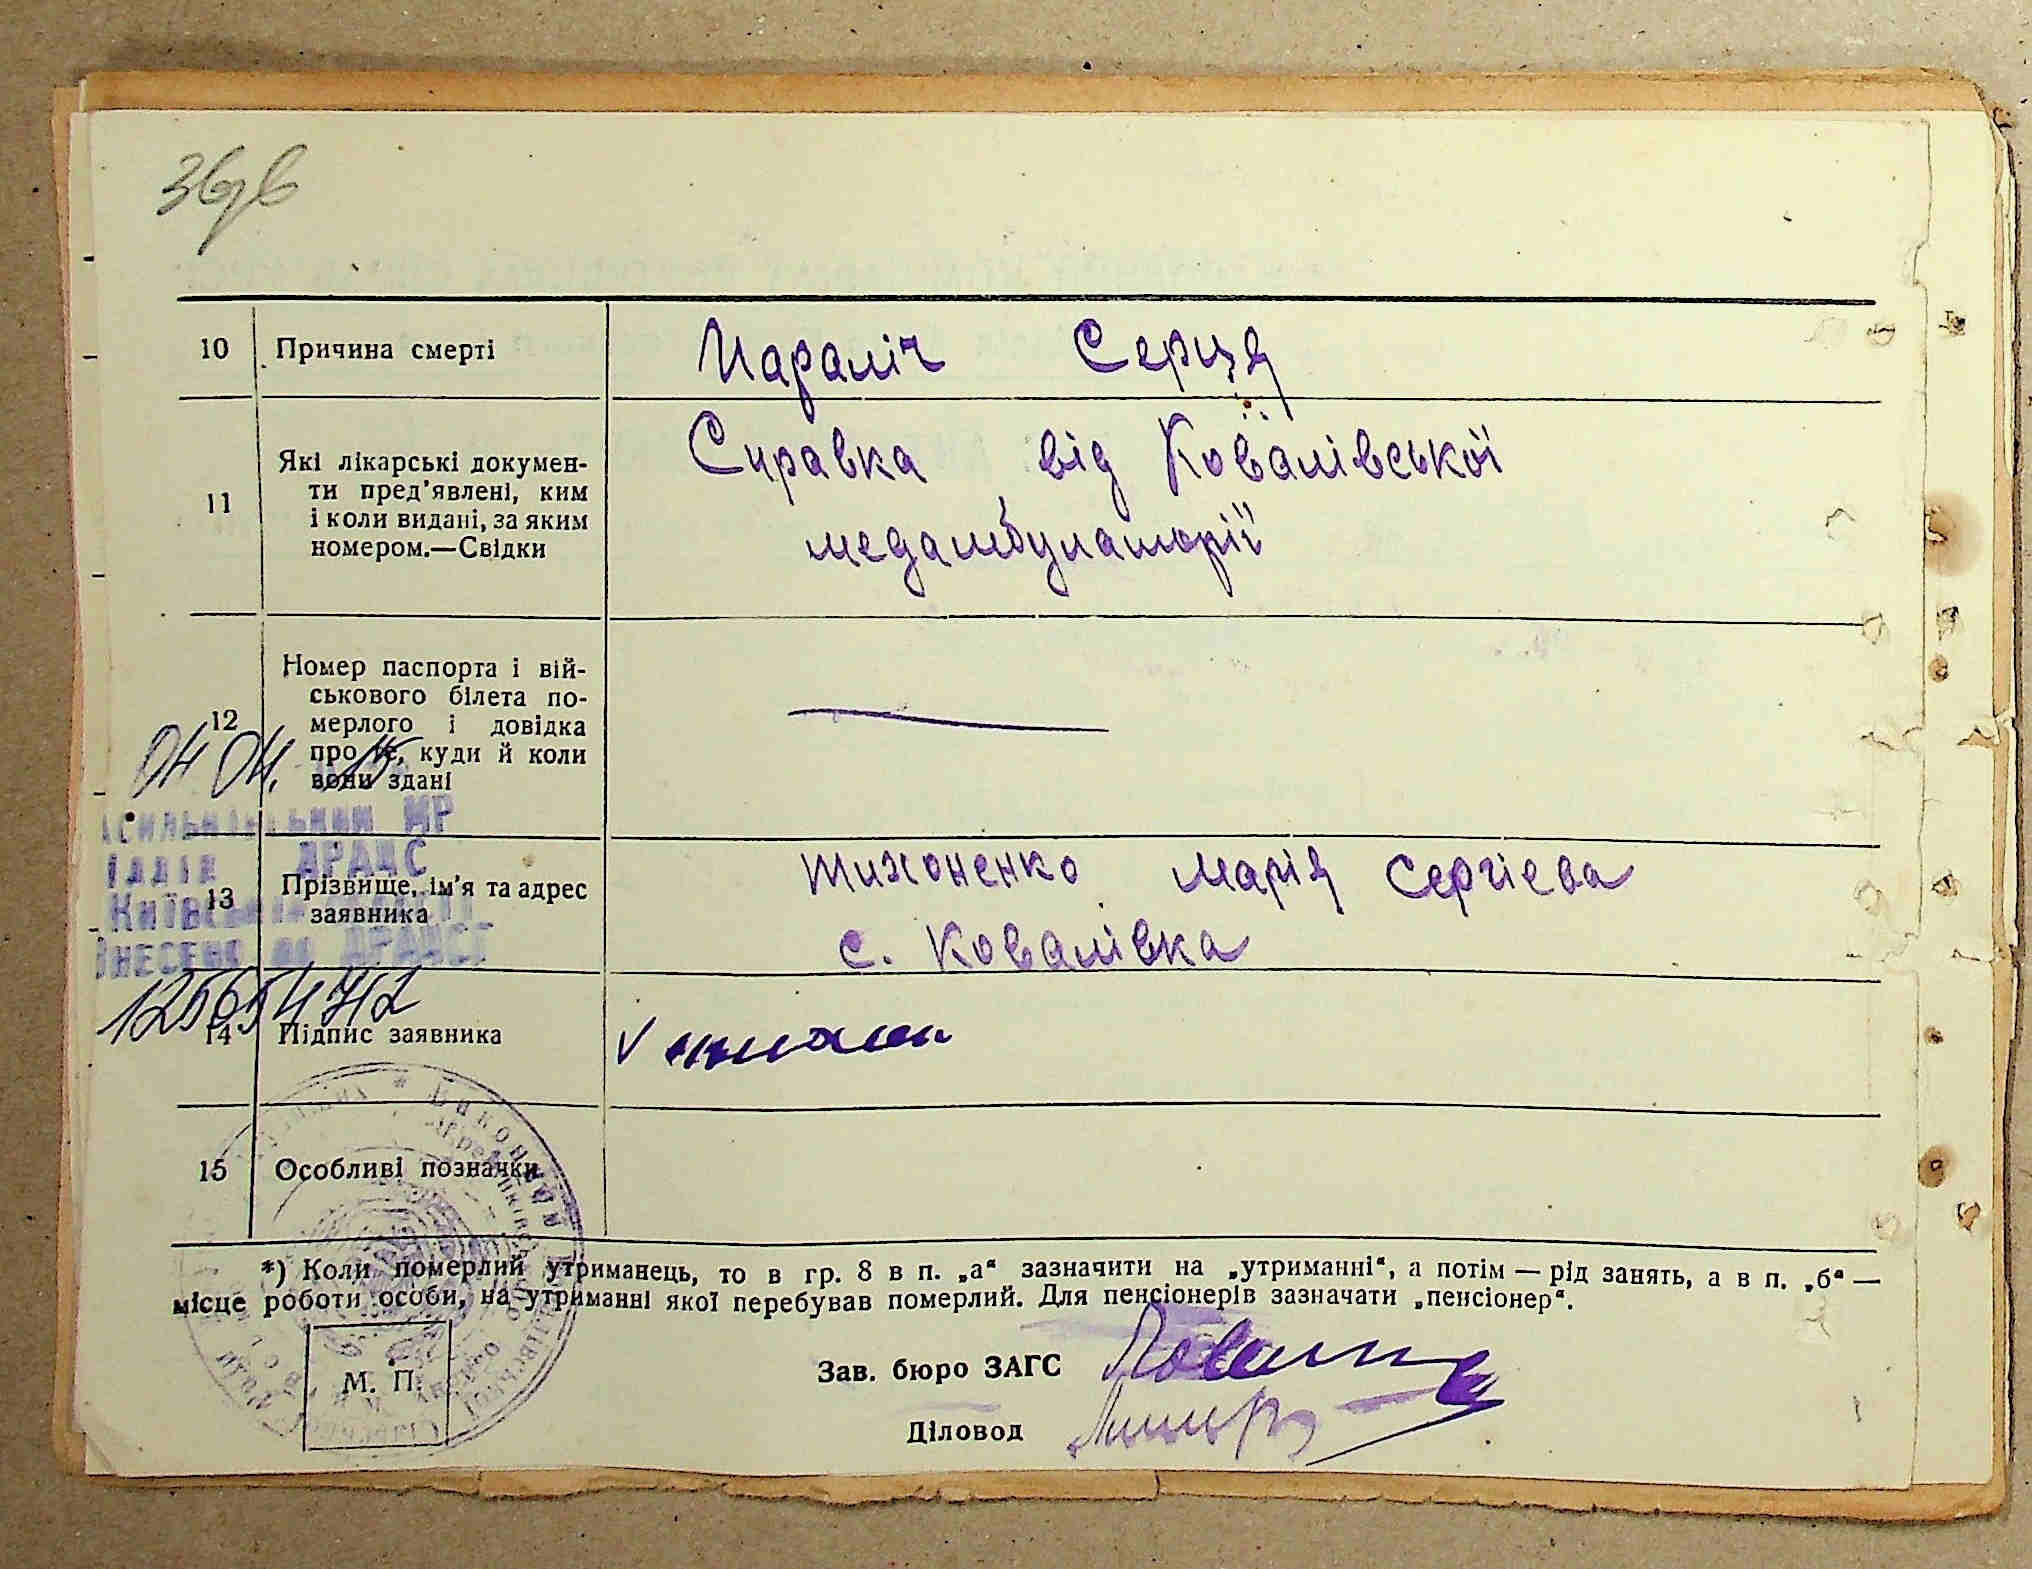 36зв
10 Причина смерті Параліч Серця
11 Які лікарські докумен-
ти пред'явлені, ким
і коли видані, за яким
номером.—Свідки
Справка від Ковалівської
медамбулаторії
12 Номер паспорта і вій-
ськового білета по-
мерлого і довідка
про те, куди й коли
вони здані
04 04. 15
МР
ДРАЦС
13 Прізвище, ім'я та адрес
заявника
Тихоненко Марія Сергієва
с. Ковалівка
ВНЕСЕНО до ДРАЦСГ
125654712
14 Підпис заявника V
15 Особливі позначки
*) Коли померлий утриманець, то в гр. 8 в п. „а“ зазначити на „утриманні“, а потім — рід занять, а в п. „б“ —
місце роботи особи, на утриманні якої перебував померлий. Для пенсіонерів зазначати „пенсіонер“.
М. П.
Зав. бюро ЗАГС
Діловод